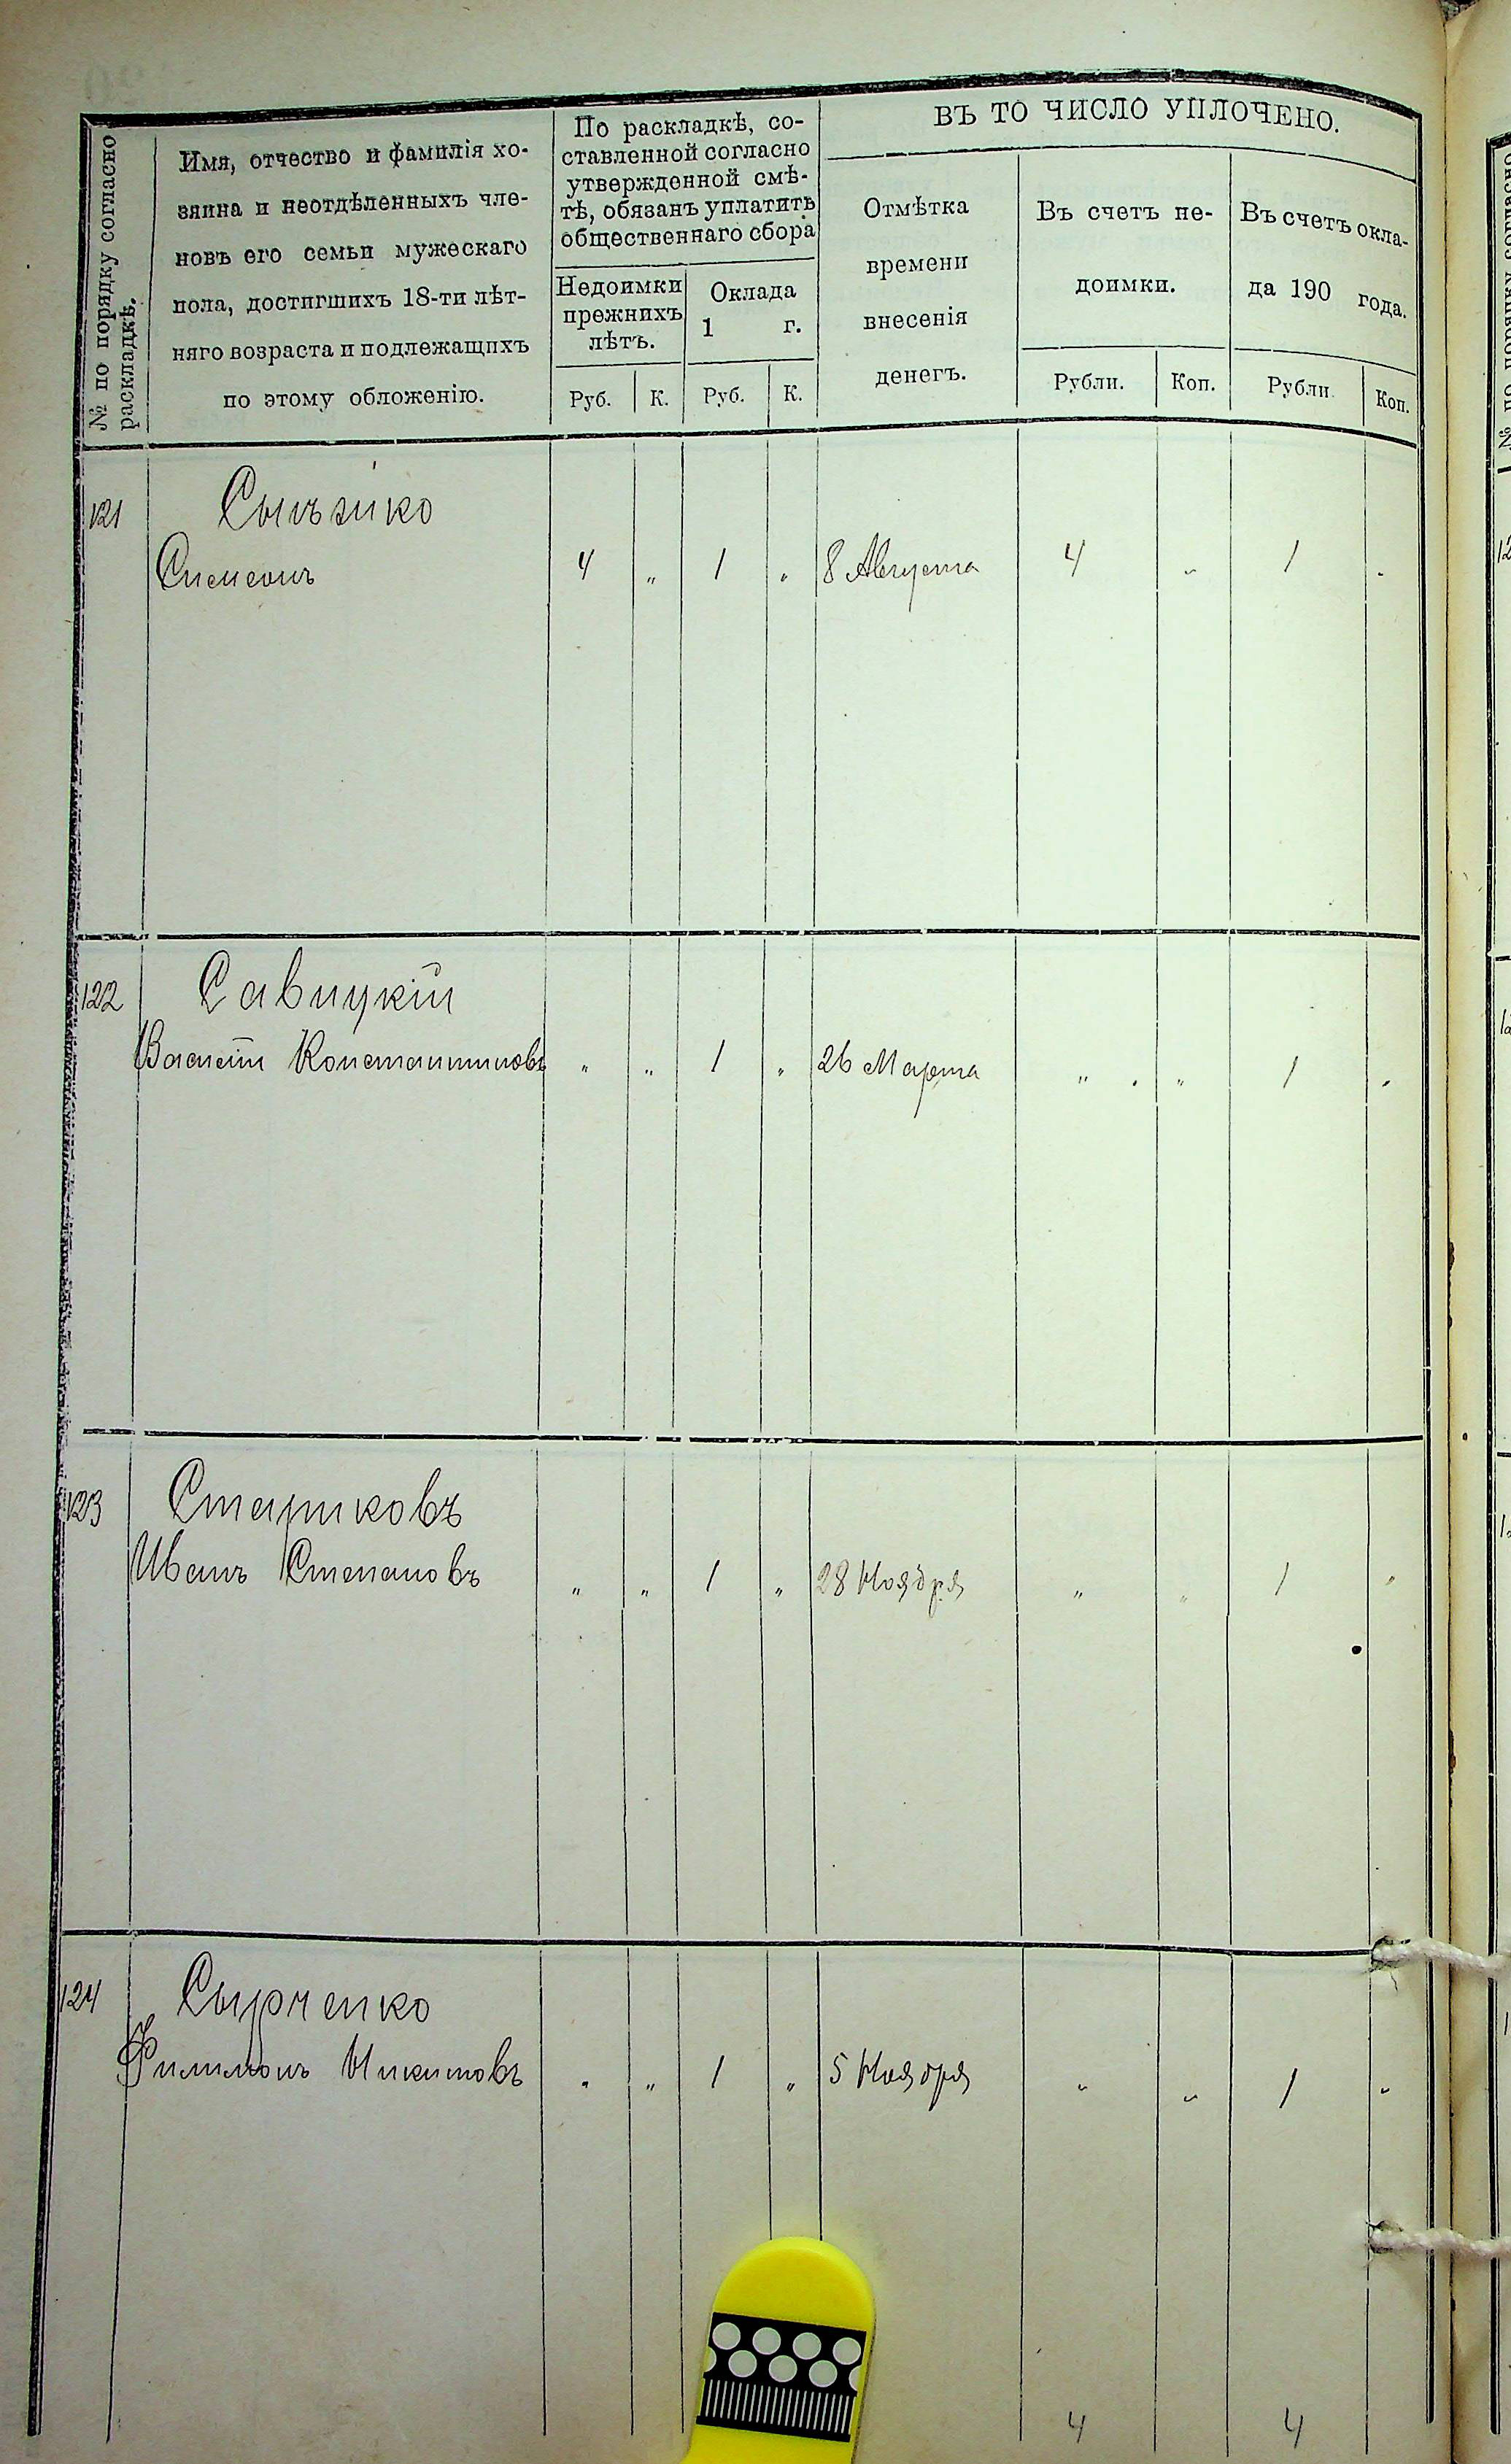 № по порядку согласно раскладкѣ.
Имя, отчество и фамилія хо-
зяина и неотдѣленныхъ чле-
новъ его семьи мужескаго
пола, достигшихъ 18-ти лѣт-
няго возраста и подлежащихъ
по этому обложенію.
По раскладкѣ, со-
ставленной согласно
утвержденной смѣ-
тѣ, обязанъ уплатить
общественнаго сбора
Недоимки
прежнихъ
лѣтъ.
Оклада
1 г.
Руб. К. Руб. К.
ВЪ ТО ЧИСЛО УПЛОЧЕНО.
Отмѣтка
времени
внесенія
денегъ.
Въ счетъ не-
доимки.
Въ счетъ окла-
да 190 года.
Рубли. Коп. Рубли. Коп.
121
Симеонъ 4 " 1 " 8 Августа 4 " 1 "
122 Савицкій
Василій Константиновъ " " 1 " 26 Марта " " 1 "
123 Стариковъ
Иванъ Степановъ " " 1 " 28 Ноября " " 1 "
124 Сырченко
Филимонъ Никитовъ " " 1 " 5 Ноября " " 1 "
4 4